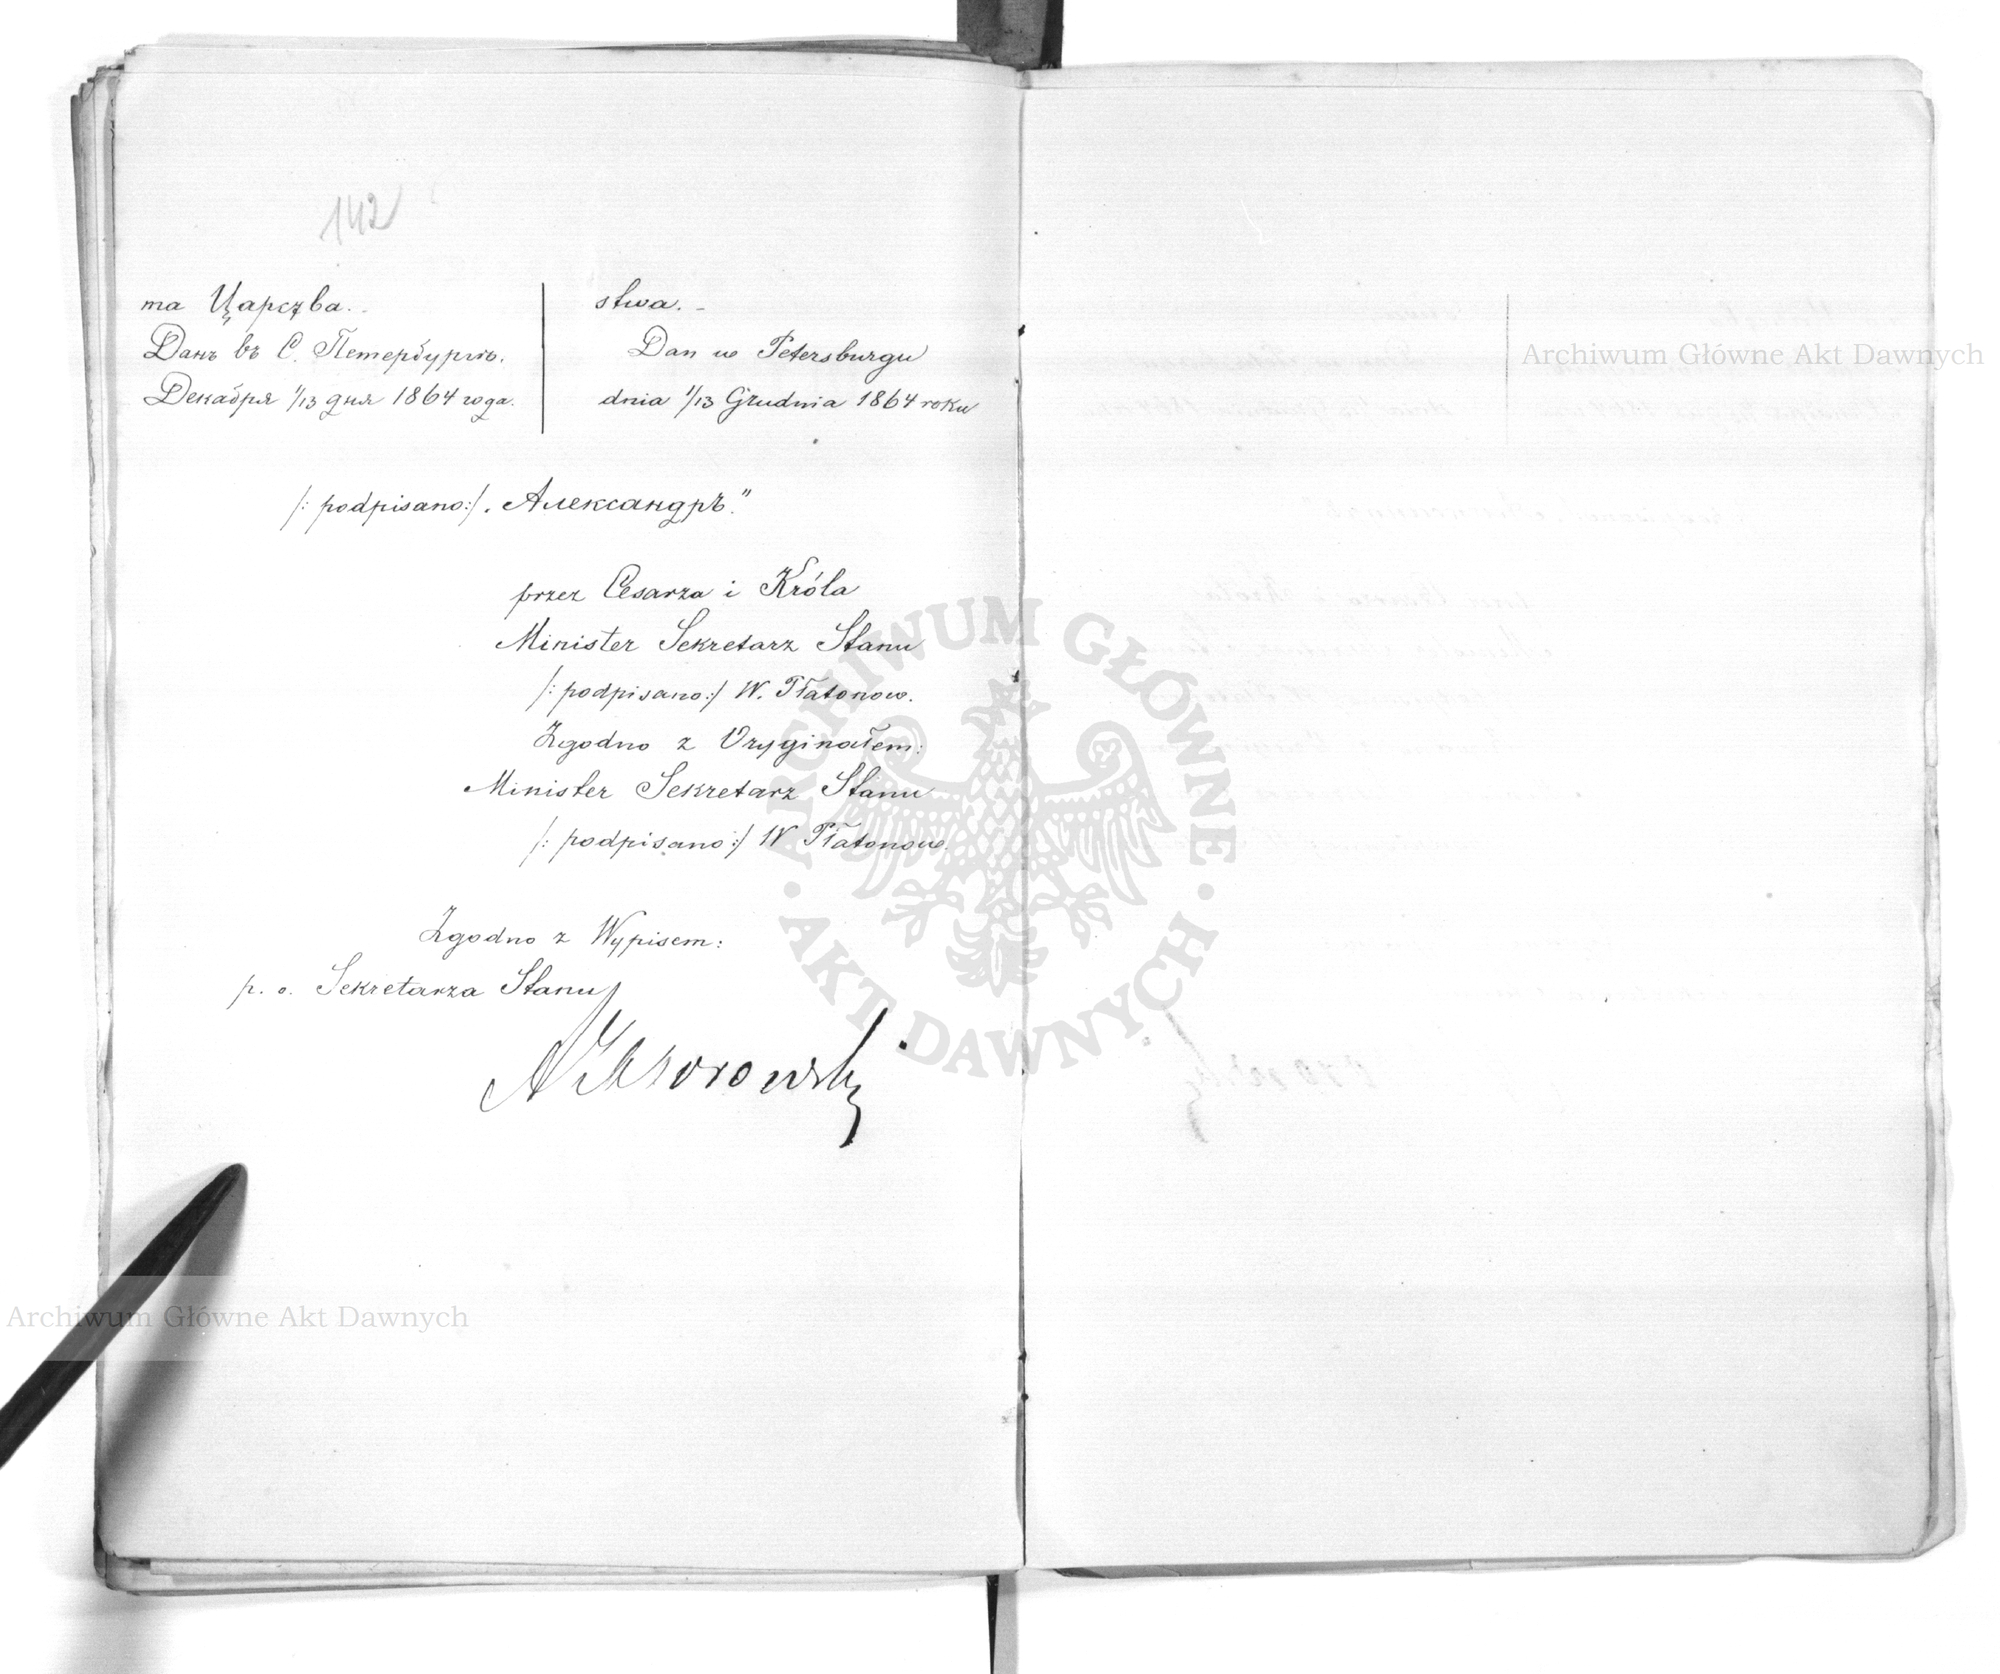 142
ma Царства. -
Данъ въ С. Петербургѣ.
Декабря 1/13 дня 1864 года.
stwa. -
Dan w Petersburgu
dnia 1/13 Grudnia 1864 roku
/: podpisano:/ „Александръ."
przez Cesarza i Króla
Minister Sekretarz Stanu
/: podpisano:/ W. Płatonow.
Zgodno z Oryginałem:
Minister Sekretarz Stanu
/: podpisano:/ W Płatonow.
Zgodno z Wypisem:
p. o. Sekretarza Stanu
ARCHIWUM GŁÓWNE
AKT DAWNYCH
Archiwum Główne Akt Dawnych
Archiwum Główne Akt Dawnych